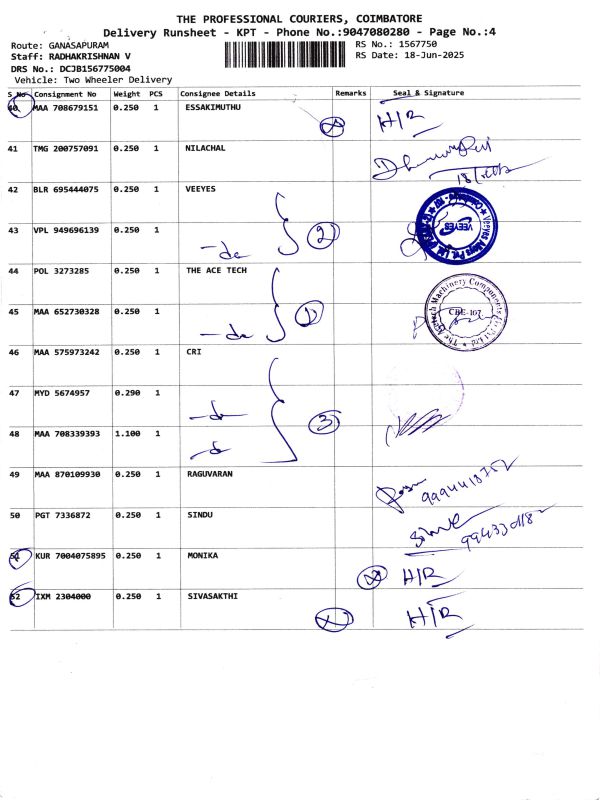 THE PROFESSIONAL COURIERS, COIMBATORE
Delivery Runsheet - KPT - Phone No.:9047080280 - Page No.:4
Route: GANASAPURAM
RS No.: 1567750
Staff: RADHAKRISHNAN V
RS Date: 18-Jun-2025
DRS No.: DCJB156775004
Vehicle: Two Wheeler Delivery
S No Consignment No Weight PCS Consignee Details Remarks Seal & Signature
40 MAA 708679151 0.250 1 ESSAKIMUTHU H/R
41 TMG 200757091 0.250 1 NILACHAL
42 BLR 695444075 0.250 1 VEEYES
43 VPL 949696139 0.250 1 -do 2
VEEYES
44 POL 3273285 0.250 1 THE ACE TECH
45 MAA 652730328 0.250 1 -do 1
CBE-107
46 MAA 575973242 0.250 1 CRI
47 MYD 5674957 0.290 1 -do 3
48 MAA 708339393 1.100 1 -do
49 MAA 870109930 0.250 1 RAGUVARAN
50 PGT 7336872 0.250 1 SINDU
51 KUR 7004075895 0.250 1 MONIKA H/R
52 IXM 2304000 0.250 1 SIVASAKTHI H/R